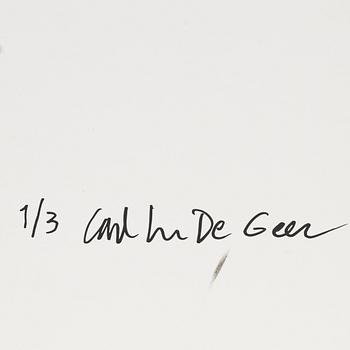 1/3 Carl Joh De Geer